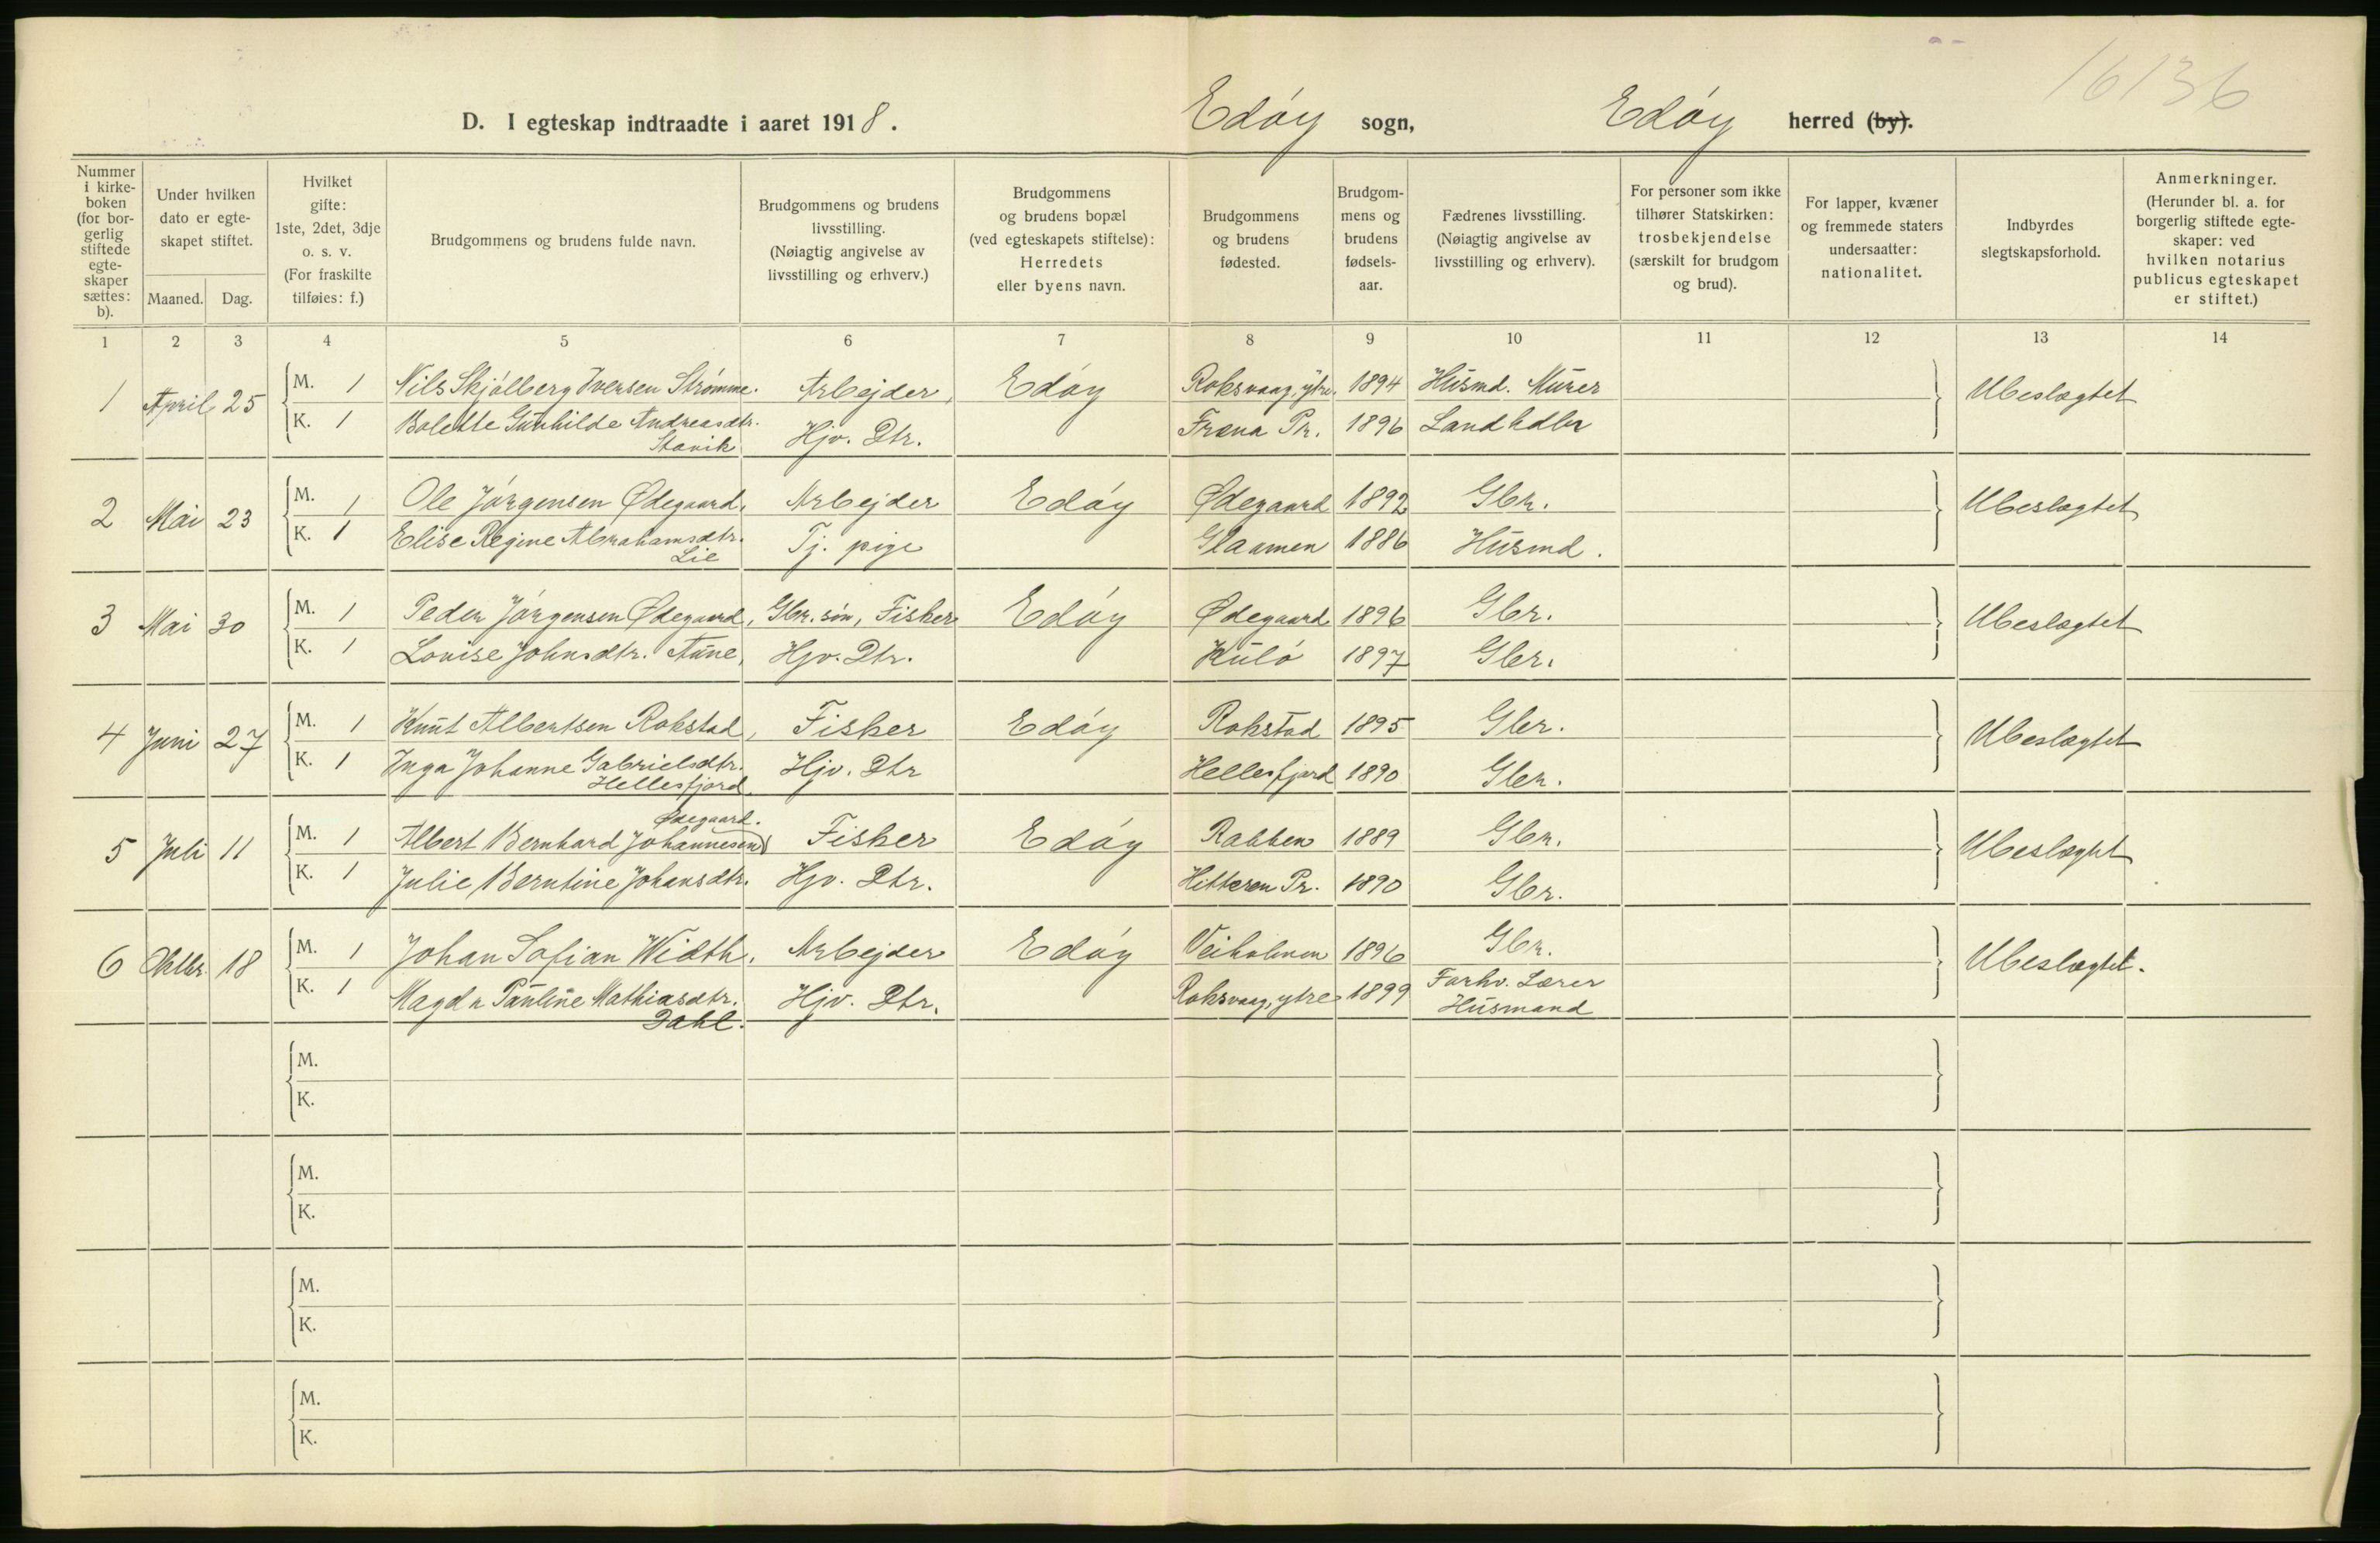 16136
D. I egteskap indtraadte i aaret 1918. Edöy sogn, Edöy herred (by).
Nummer i kirkeboken (for borgerlig stiftede egteskaper sættes: b).
Under hvilken dato er egteskapet stiftet.
Maaned. Dag.
Hvilket gifte: 1ste, 2det, 3dje o. s. v. (For fraskilte tilføies: f.)
Brudgommens og brudens fulde navn.
Brudgommens og brudens livsstilling. (Nøiagtig angivelse av livsstilling og erhverv.)
Brudgommens og brudens bopæl (ved egteskapets stiftelse): Herredets eller byens navn.
Brudgommens og brudens fødested.
Brudgommens og brudens fødselsaar.
Fædrenes livsstilling. (Nøiagtig angivelse av livsstilling og erhverv).
For personer som ikke tilhører Statskirken: trosbekjendelse (særskilt for brudgom og brud).
For lapper, kvæner og fremmede staters undersaatter: nationalitet.
Indbyrdes slegtskapsforhold.
Anmerkninger. (Herunder bl. a. for borgerlig stiftede egteskaper: ved hvilken notarius publicus egteskapet er stiftet.)
1 2 3 4 5 6 7 8 9 10 11 12 13 14
1 April 25 M. 1 Nils Skjölberg Iversen Strömme. Arbejder, Edöy Roksvaag, ytre. 1894 Husmd. Murer Ubeslægtet
K. 1 Bolette Gunhilde Andreasdtr. Stavik Hjv. Dtr. Fræna Pr. 1896 Landhdler
2 Mai 23 M. 1 Ole Jörgensen Ødegaard. Arbejder Edöy Ødegaard 1892 Gbr. Ubeslægtet
K. 1 Elise Regine Abrahamsdtr. Lie Tj. pige Glaamen 1886 Husmd.
3 Mai 30 M. 1 Peder Jörgensen Ødegaard, Gbr. sön, Fisker Edöy Ødegaard 1896 Gbr. Ubeslægtet
K. 1 Lovise Johnsdtr. Aune, Hjv. Dtr. Kulö 1897 Gbr.
4 Juni 27 M. 1 Knut Albertsen Rokstad, Fisker Edöy Rokstad 1895 Gbr. Ubeslægtet
K. 1 Inga Johanne Gabrielsdtr. Hellesfjord. Hjv. Dtr Hellesfjord 1890 Gbr.
5 Juli 11 M. 1 Albert Bernhard Johannesen Ødegaard. Fisker Edöy Rabben 1889 Gbr. Ubeslægtet
K. 1 Julie Berntine Johansdtr. Hjv. Dtr. Hitteren Pr. 1890 Gbr.
6 Oktbr. 18 M. 1 Johan Sofian Width. Arbejder Edöy Veiholmen 1896 Gbr. Ubeslægtet.
K. 1 Magda Pauline Mathiasdtr. Dahl. Hjv. Dtr. Roksvaag, ytre 1899 Forhv. Lærer Husmand
M.
K.
M.
K.
M.
K.
M.
K.